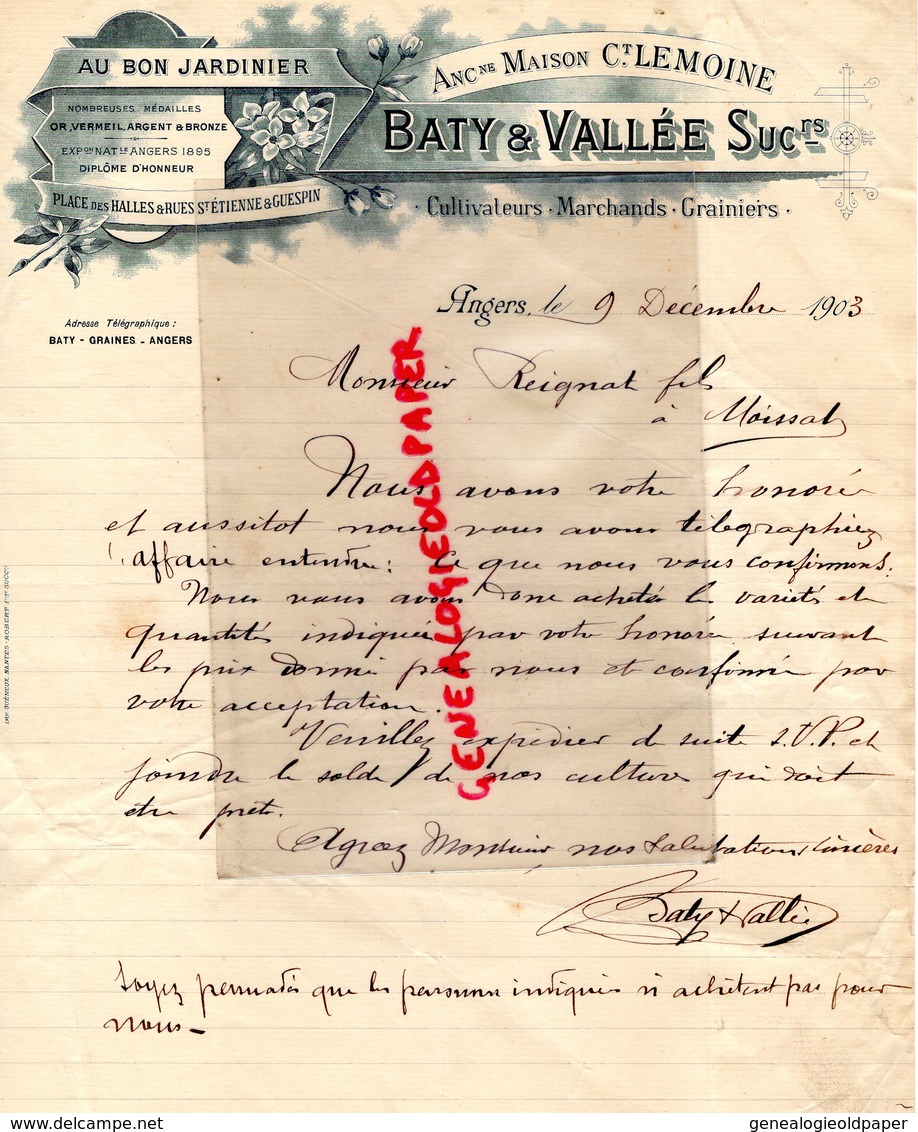 AU BON JARDINIER
NOMBREUSES MÉDAILLES
OR, VERMEIL, ARGENT & BRONZE
EXPON NATLE ANGERS 1895
DIPLÔME D'HONNEUR
PLACE DES HALLES & RUES ST ÉTIENNE & GUESPIN
ANCNE MAISON CT LEMOINE
BATY & VALLÉE SUCRS
Cultivateurs · Marchands · Grainiers ·
Adresse Télégraphique :
BATY - GRAINES - ANGERS
Angers, le 9 Décembre 1903
Monsieur Reignat fils
à Moissat
Nous avons votre honorée
et aussitot nous vous avons télégraphiez
affaire entendue : Ce que nous vous confirmons.
Nous vous avons donc achetés les variétés et
quantités indiquées par votre honorée suivant
les prix donné par nous et confirmé par
votre acceptation.
Veuillez expédier de suite S.V.P. et
joindre le solde de nos cultures qui doit
etre prêt.
Agréez Monsieur, nos Salutations Sincères
Baty & Vallée
Soyez persuadés que les personnes indiquées n'achètent pas pour
nous -
GENEALOGIEOLDPAPER
IMP. GUÉNEUX. NANTES - ROBERT Ft Sr SUCCr
www.delcampe.net
genealogieoldpaper